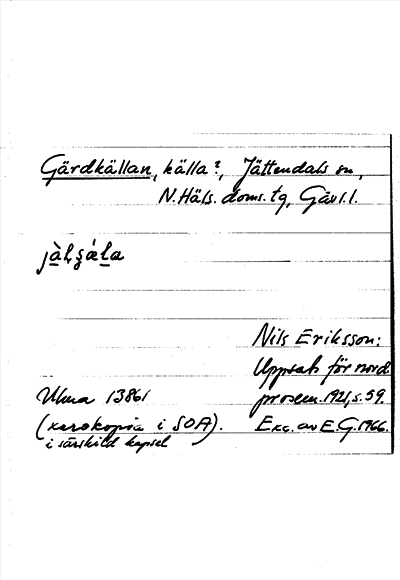 Gärdkällan, källa?, Jättendals sn,
N.Häls. doms. tg, Gävl.l.
Nils Eriksson:
Uppsats för nord.
prosem. 1921, s. 59.
Ulma 13861
(xerokopia i SOA).
Exc. av E.G. 1966.
i särskild kapsel